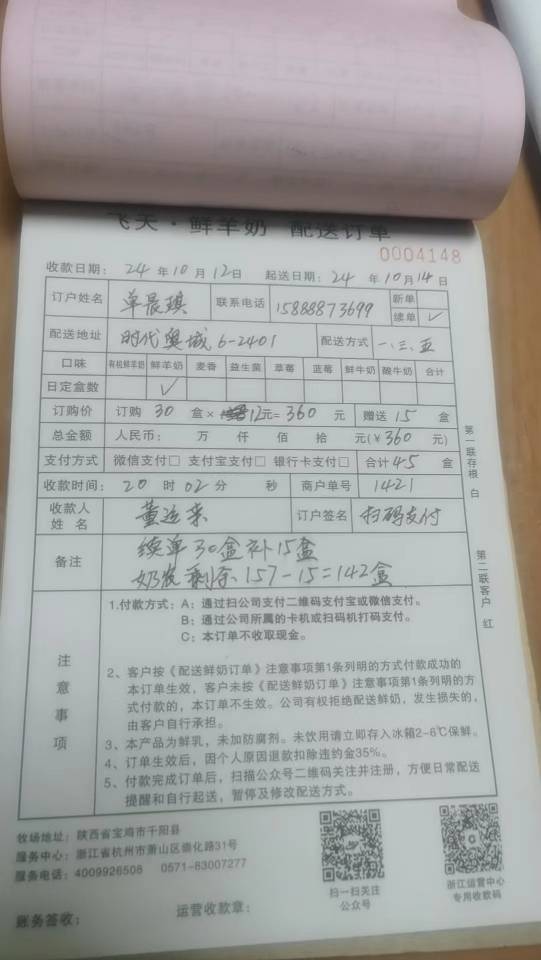 飞天·鲜羊奶 配送订单
0004148
收款日期: 24 年 10 月 12日 起送日期: 24 年 10 月 14 日
订户姓名 单晨琪 联系电话 15888873699 新单
续单 ✓
配送地址 时代奥城 6-2401 配送方式 一、三、五
口味 有机鲜羊奶 鲜羊奶 麦香 益生菌 草莓 蓝莓 鲜牛奶 酸牛奶 合计
日定盒数 ✓
订购价 订购 30 盒× 12元= 360 元 赠送 15 盒
总金额 人民币: 万 仟 佰 拾 元(¥ 360 元)
支付方式 微信支付□ 支付宝支付□ 银行卡支付□ 合计 45 盒
收款时间: 20 时 02 分 秒 商户单号 1421
收款人姓名 董运荣 订户签名 扫码支付
备注 续单30盒补15盒
奶友剩余 157-15=142盒
注意事项
1.付款方式: A: 通过扫公司支付二维码支付宝或微信支付。
B: 通过公司所属的卡机或扫码机打码支付。
C: 本订单不收取现金。
2、客户按《配送鲜奶订单》注意事项第1条列明的方式付款成功的
本订单生效,客户未按《配送鲜奶订单》注意事项第1条列明的方
式付款的,本订单不生效。公司有权拒绝配送鲜奶,发生损失的,
由客户自行承担。
3、本产品为鲜乳,未加防腐剂。未饮用请立即存入冰箱2-6℃保鲜。
4、订单生效后,因个人原因退款扣除违约金35%。
5、付款完成订单后,扫描公众号二维码关注并注册,方便日常配送
提醒和自行起送,暂停及修改配送方式。
第一联存根 白
第二联客户 红
牧场地址: 陕西省宝鸡市千阳县
服务中心: 浙江省杭州市萧山区崇化路31号
服务电话: 4009926508 0571-83007277
扫一扫关注
公众号
浙江运营中心
专用收款码
账务签收: 运营收款章: